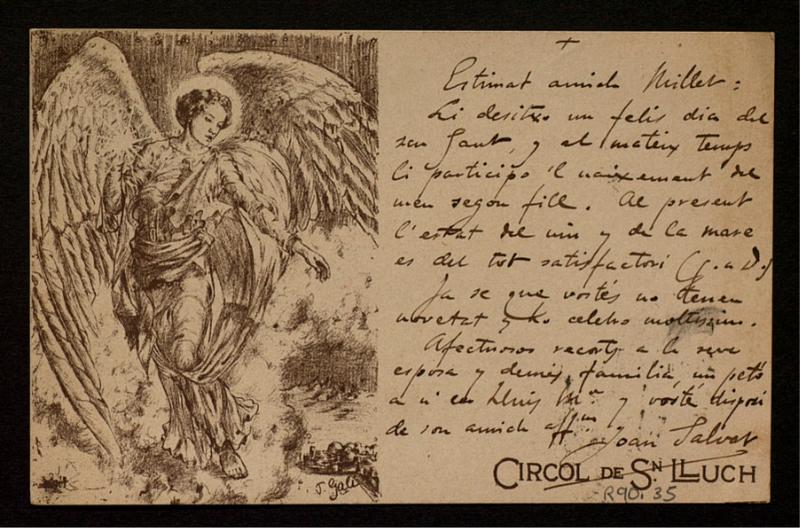 +
Estimat amich Millet:
Li desitxo un felis dia del
seu Sant, y al mateix temps
li participo 'l naixement del
meu segon fill. Al present
l'estat del nin y de la mare
es del tot satisfactori (g. a D.)
Ja se que vostés no tenen
novetat y ho celebro moltissim.
Afectuosos recorts a la seva
esposa y demés familia, un petó
a n' en Lluis Mª y vosté disposi
de son amich affm
Joan Salvat
F. Galí
CIRCOL DE SN. LLUCH
R90.35